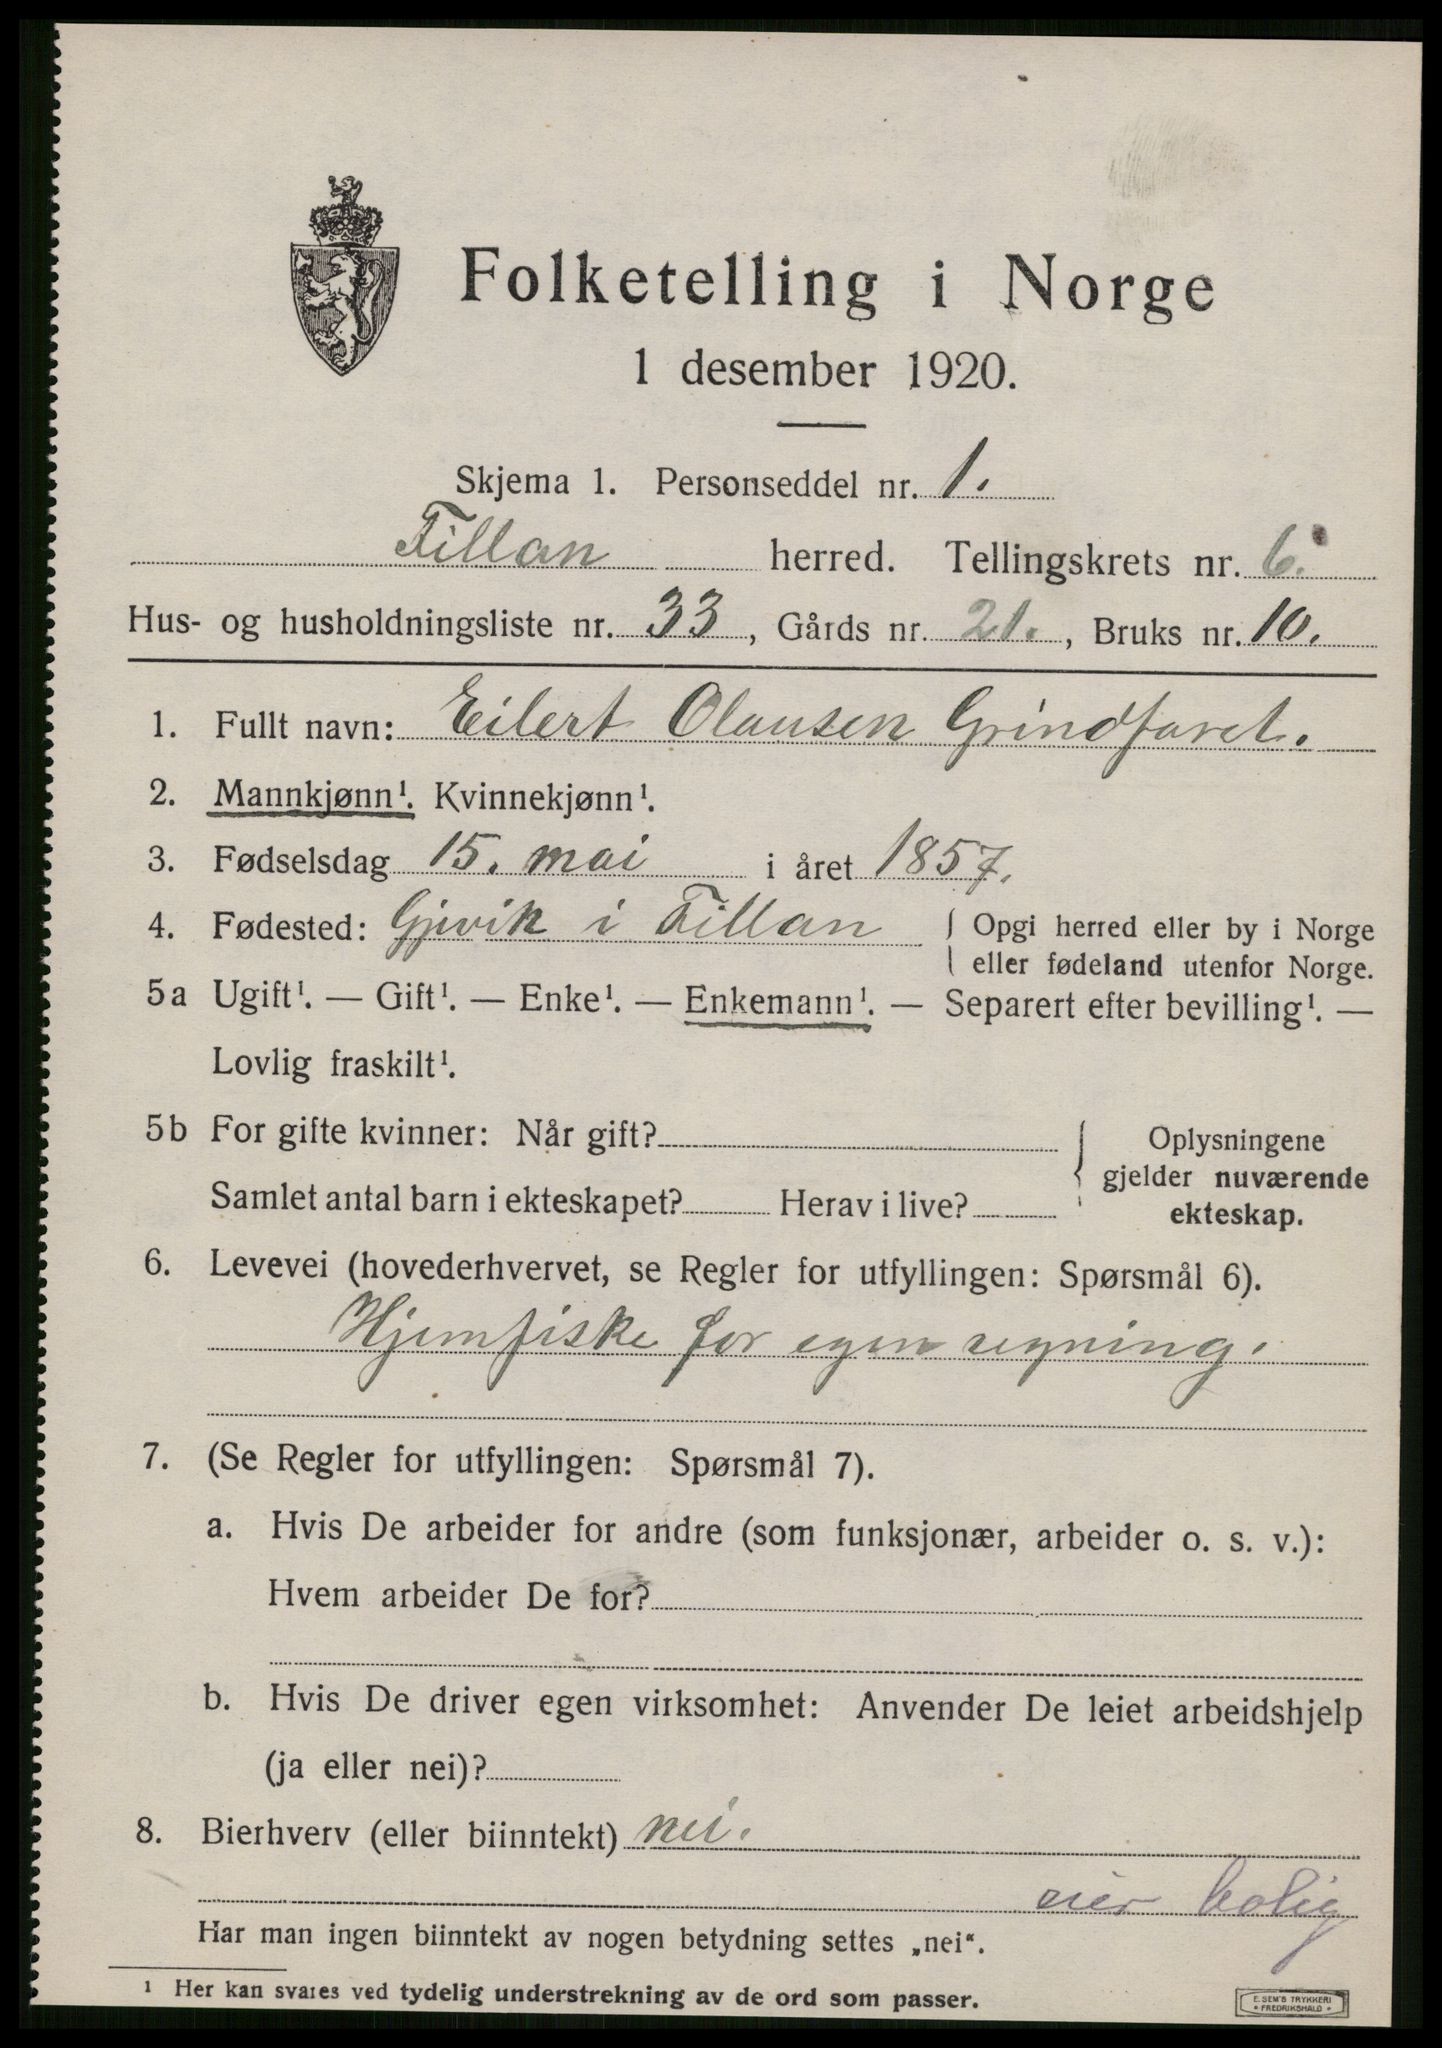 Folketelling i Norge
1 desember 1920.
Skjema 1. Personseddel nr. 1.
Fillan herred. Tellingskrets nr. 6.
Hus- og husholdningsliste nr. 33, Gårds nr. 21., Bruks nr. 10.
1. Fullt navn: Eilert Olausen Grindfaret.
2. Mannkjønn¹. Kvinnekjønn¹.
3. Fødselsdag 15. mai i året 1857.
4. Fødested: Gjevik i Fillan { Opgi herred eller by i Norge
eller fødeland utenfor Norge.
5a Ugift¹. — Gift¹. — Enke¹. — Enkemann¹. — Separert efter bevilling¹. —
Lovlig fraskilt¹.
5b For gifte kvinner: Når gift?
Samlet antal barn i ekteskapet? Herav i live?
{ Oplysningene
gjelder nuværende
ekteskap.
6. Levevei (hovederhvervet, se Regler for utfyllingen: Spørsmål 6).
Hjemfiske for egen regning.
7. (Se Regler for utfyllingen: Spørsmål 7).
a. Hvis De arbeider for andre (som funksjonær, arbeider o. s. v.):
Hvem arbeider De for?
b. Hvis De driver egen virksomhet: Anvender De leiet arbeidshjelp
(ja eller nei)?
8. Bierhverv (eller biinntekt) nei.
eier bolig
Har man ingen biinntekt av nogen betydning settes „nei“.
¹ Her kan svares ved tydelig understrekning av de ord som passer.
E. SEM'S TRYKKERI
• FREDRIKSHALD •